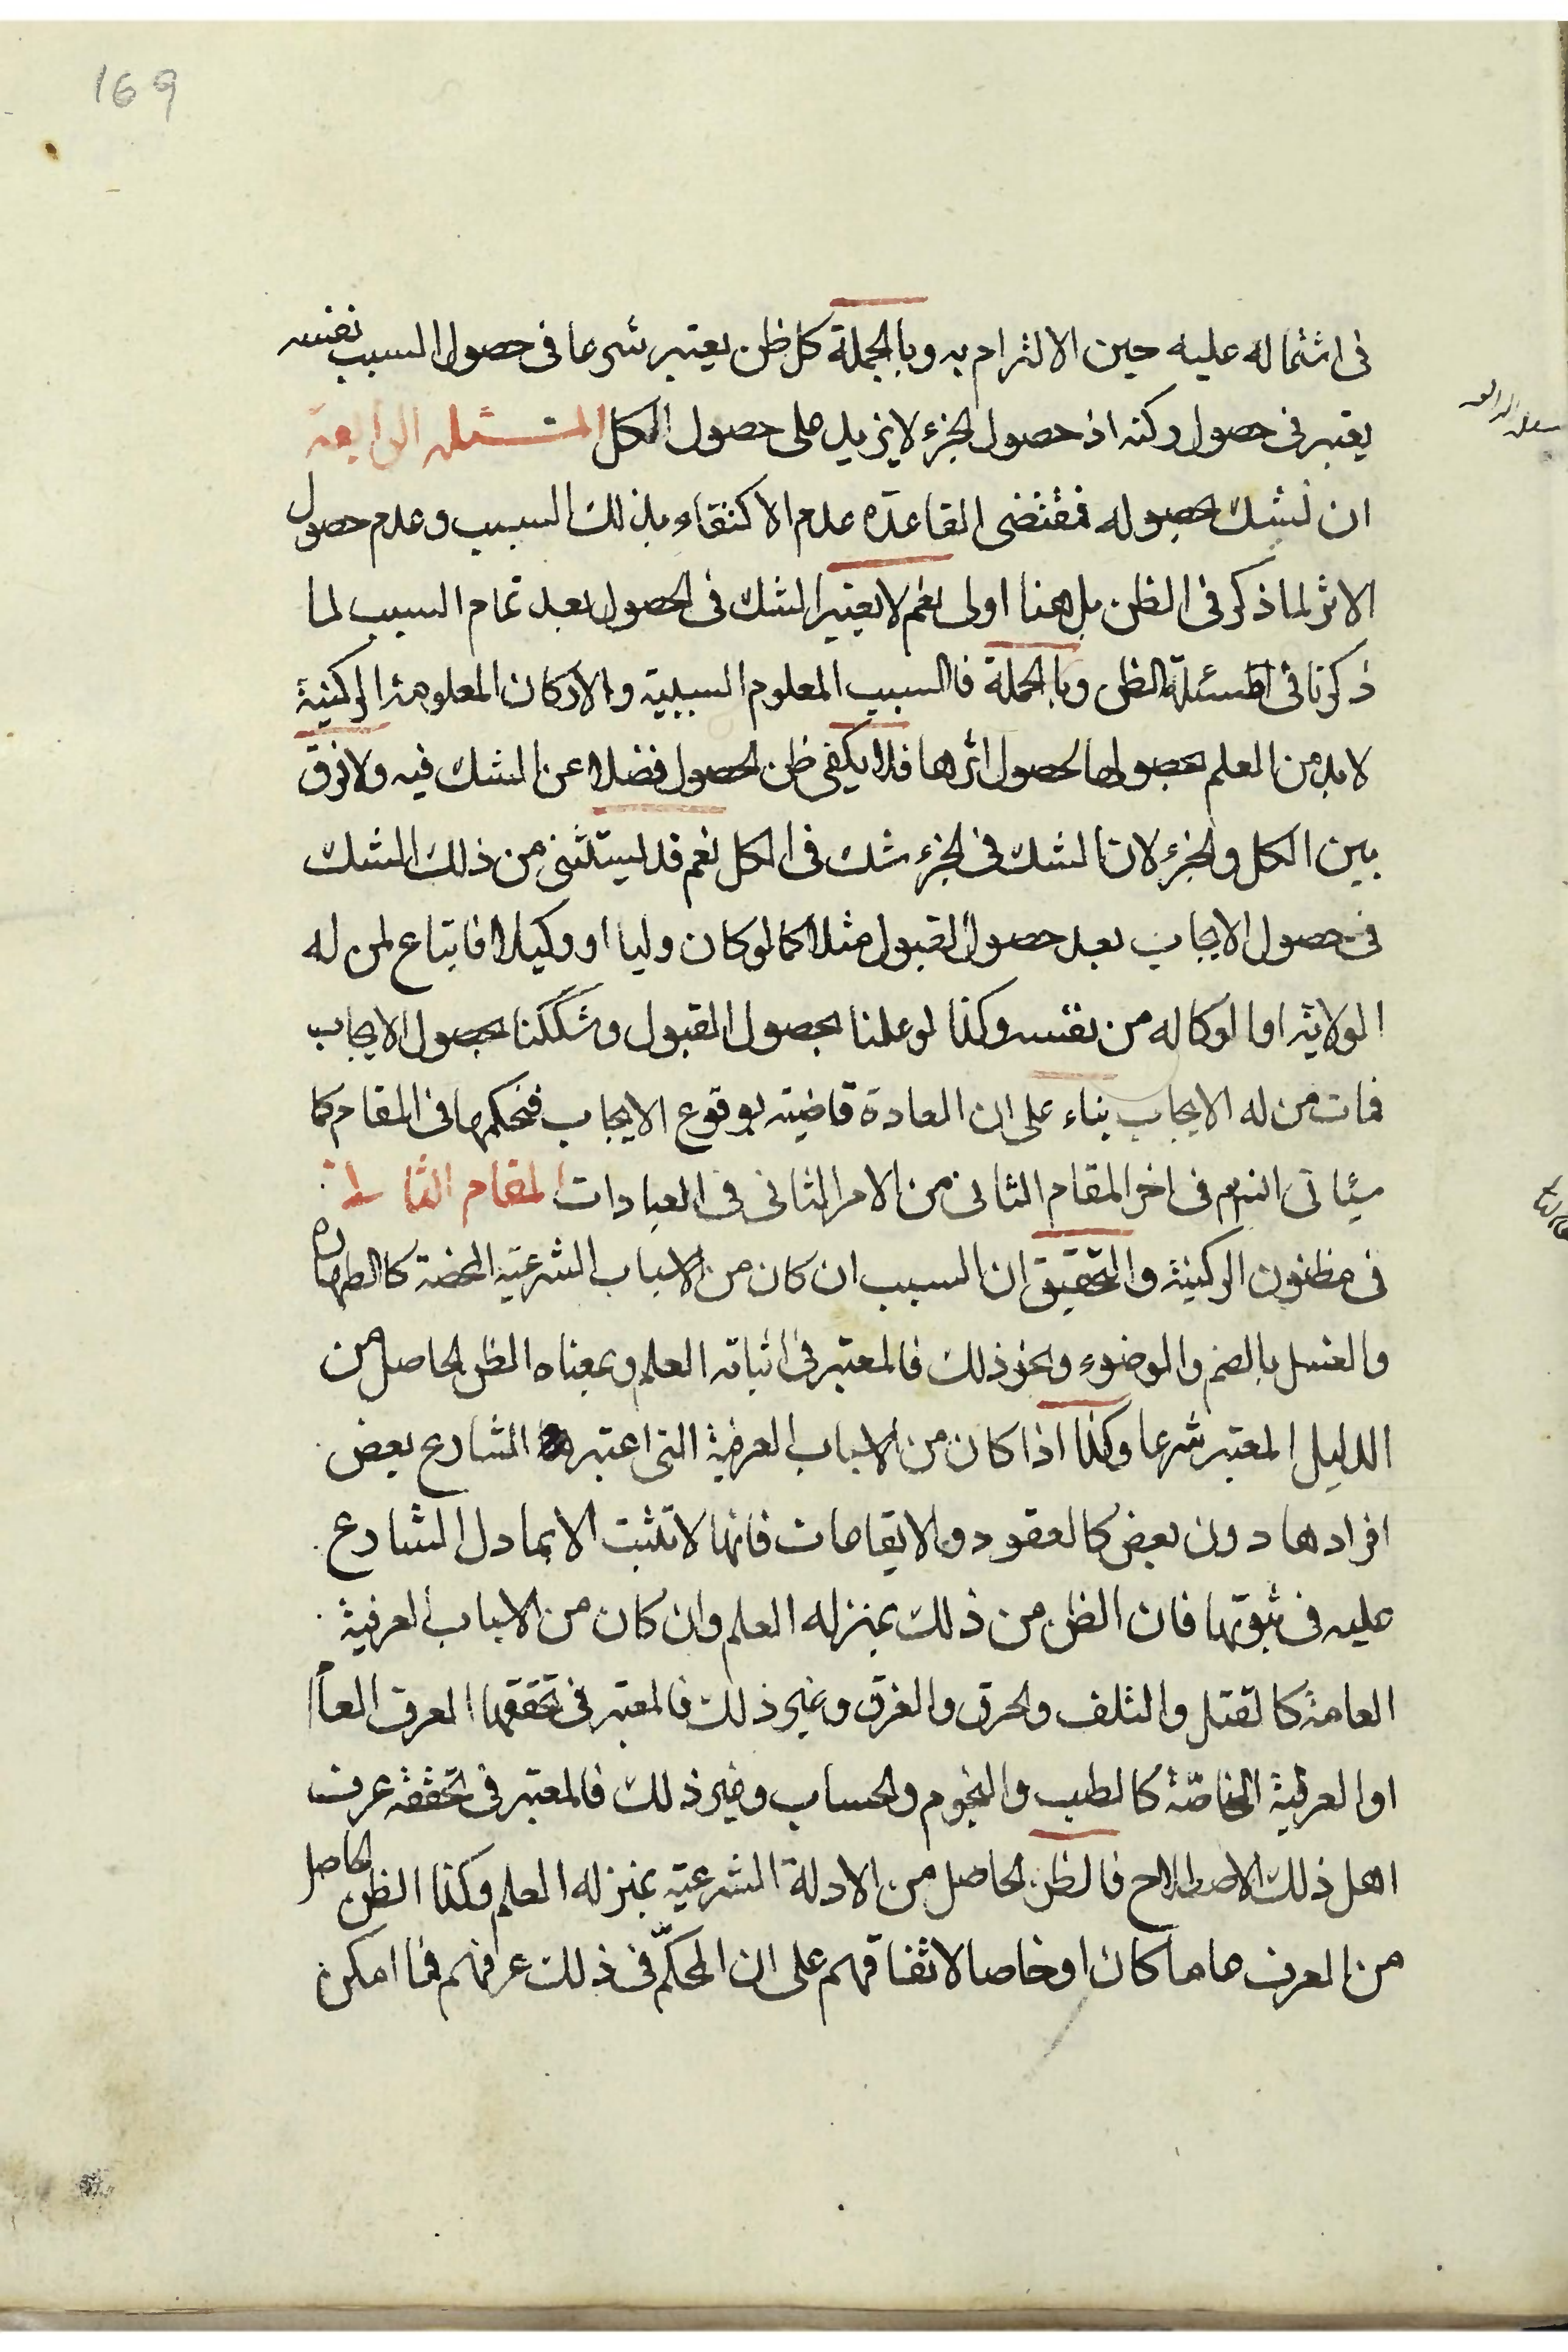 169
فى اشتماله عليه حين الالتزام به وبالجملة كل ظن يعتبر شرعا فى حصول السبب نفسه
يعتبر فى حصول ركنه اذ حصول الجزء لا يزيد على حصول الكل المسئله الرابعة
ان نشك حصوله فمقتضى القاعدة عدم الاكتفاء بذلك السبب وعدم حصول
الاثر لما ذكر فى الظن بل هنا اولى نعم لا يعتبر الشك فى الحصول بعد تمام السبب لما
ذكرنا فى المسئلة الظن وبالجملة فالسبب المعلوم السببية والاركان المعلومة الركنية
لا بد من العلم بحصولها لحصول اثرها فلا يكفى ظن الحصول فضلا عن الشك فيه ولا فرق
بين الكل والجزء لان الشك فى الجزء شك فى الكل نعم قد يستثنى من ذلك الشك
فى حصول الايجاب بعد حصول القبول مثلا كما لو كان وليا او وكيلا فابتاع لمن له
الولاية او الوكاله من نفسه وكذا لو علمنا بحصول القبول وشككنا بحصول الايجاب
فمات من له الايجاب بناء على ان العادة قاضية بوقوع الايجاب فنحكمها فى المقام كما
سيئاتى انشم فى اخر المقام الثانى من الامر الثانى فى العبادات المقام الثالث
فى مظنون الركنية والتحقيق ان السبب ان كان من الاسباب الشرعية المحضة كالطهارة
والغسل بالضم والوضوء ونحو ذلك فالمعتبر فى اثباته العلم وبمعناه الظن الحاصل من
الدليل المعتبر شرعا وكذا اذا كان من الاسباب العرفية التى اعتبر الشارع بعض
افرادها دون بعض كالعقود والايقاعات فانها لا تثبت الا بما دل الشارع
عليه فى ثبوتها فان الظن من ذلك بمنزله العلم وان كان من الاسباب العرفية
العامة كالقتل والتلف والحرق والغرق وغير ذلك فالمعتبر فى تحققها العرف العام
او العرفية الخاصّة كالطب والنجوم والحساب وغير ذلك فالمعتبر فى تحققه عرف
اهل ذلك الاصطلاح فالظن الحاصل من الادلة الشرعية بمنزله العلم وكذا الظن الحاصل
من العرف عاما كان او خاصا لاتفاقهم على ان المحكّم فى ذلك عرفهم فما امكن